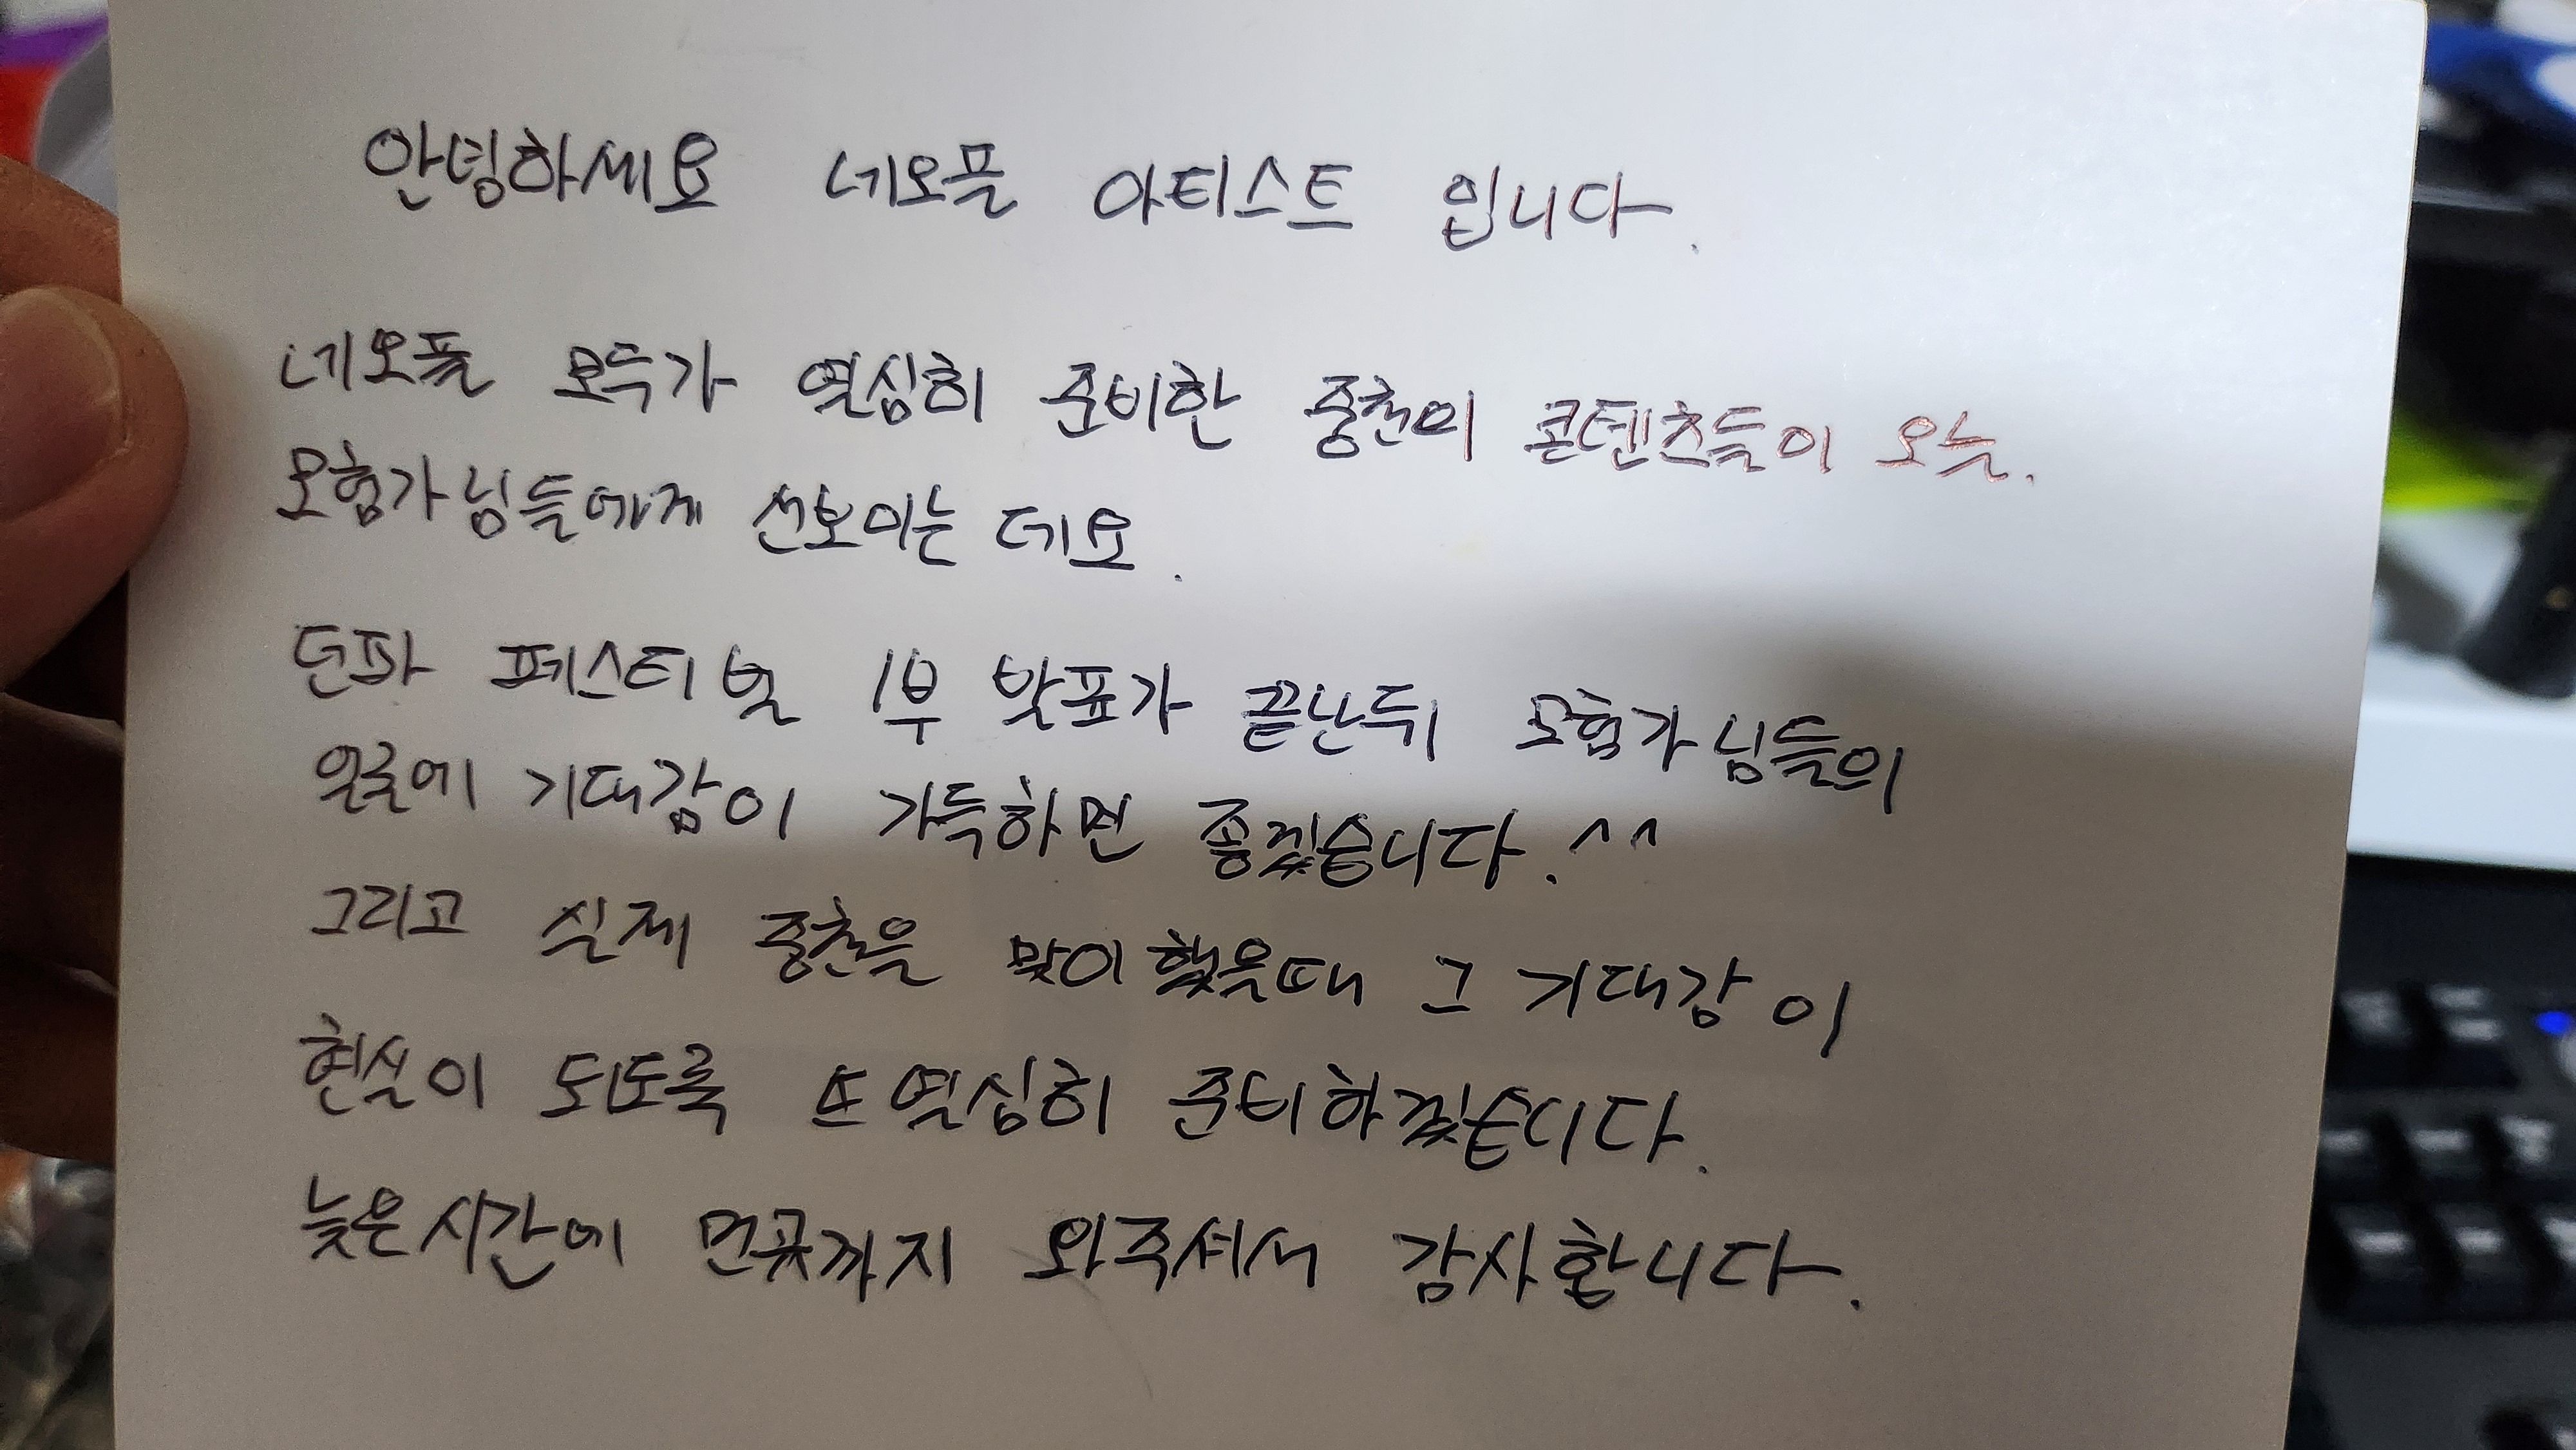 안녕하세요 네오플 아티스트 입니다.
네오플 모두가 열심히 준비한 중천의 콘텐츠들이 오늘.
모험가님들에게 선보이는 데요.
던파 페스티벌 1부 발표가 끝난뒤 모험가님들의
얼굴에 기대감이 가득하면 좋겠습니다.^^
그리고 실제 중천을 맞이했을때 그 기대감이
현실이 되도록 또 열심히 준비하겠습니다.
늦은시간에 먼곳까지 와주셔서 감사합니다.